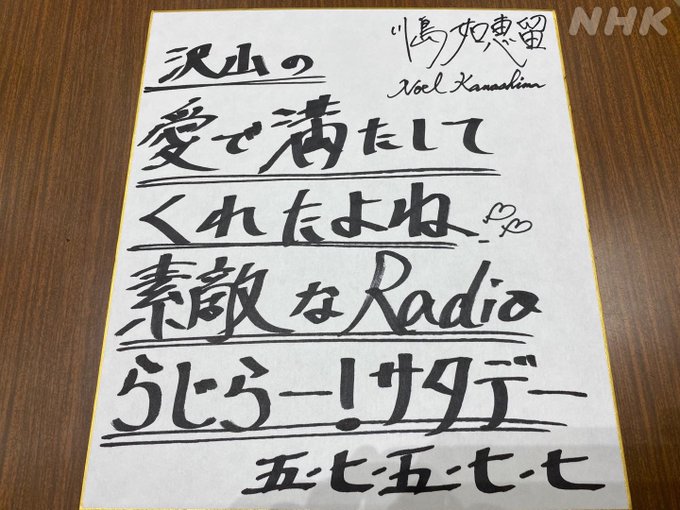 NHK
川島如恵留
Noel Kawashima
沢山の
愛で満たして
くれたよね
素敵なRadio
らじらー!サタデー
五・七・五・七・七